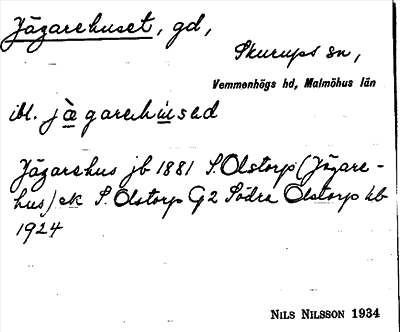 Jägarehuset, gd,
Skurups sn,
Vemmenhögs hd, Malmöhus län
ibl. jægarehused
Jägarehus jb 1881 S. Olstorp (Jägare-
hus) ek S. Olstorp G2 Södra Olstorp kb
1924
NILS NILSSON 1934